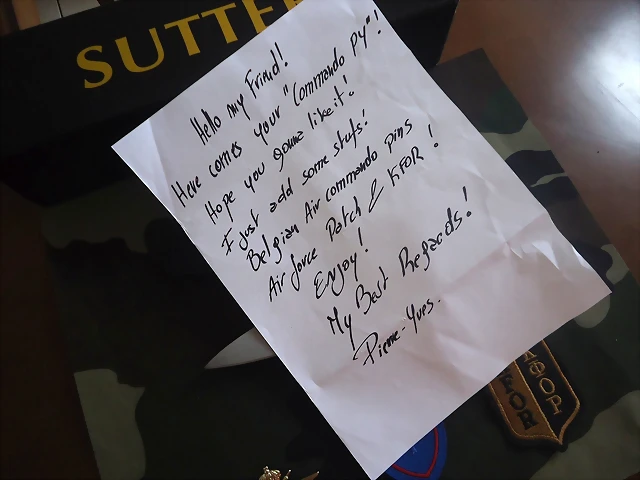 SUTTER
Hello my Friend!
Here comes your "Commando PY"!
Hope you gonna like it!
I just add some stufs!
Belgian Air commando pins
Air force Patch & KFOR!
Enjoy!
My Best Regards!
Pierre-Yves.
KFOR